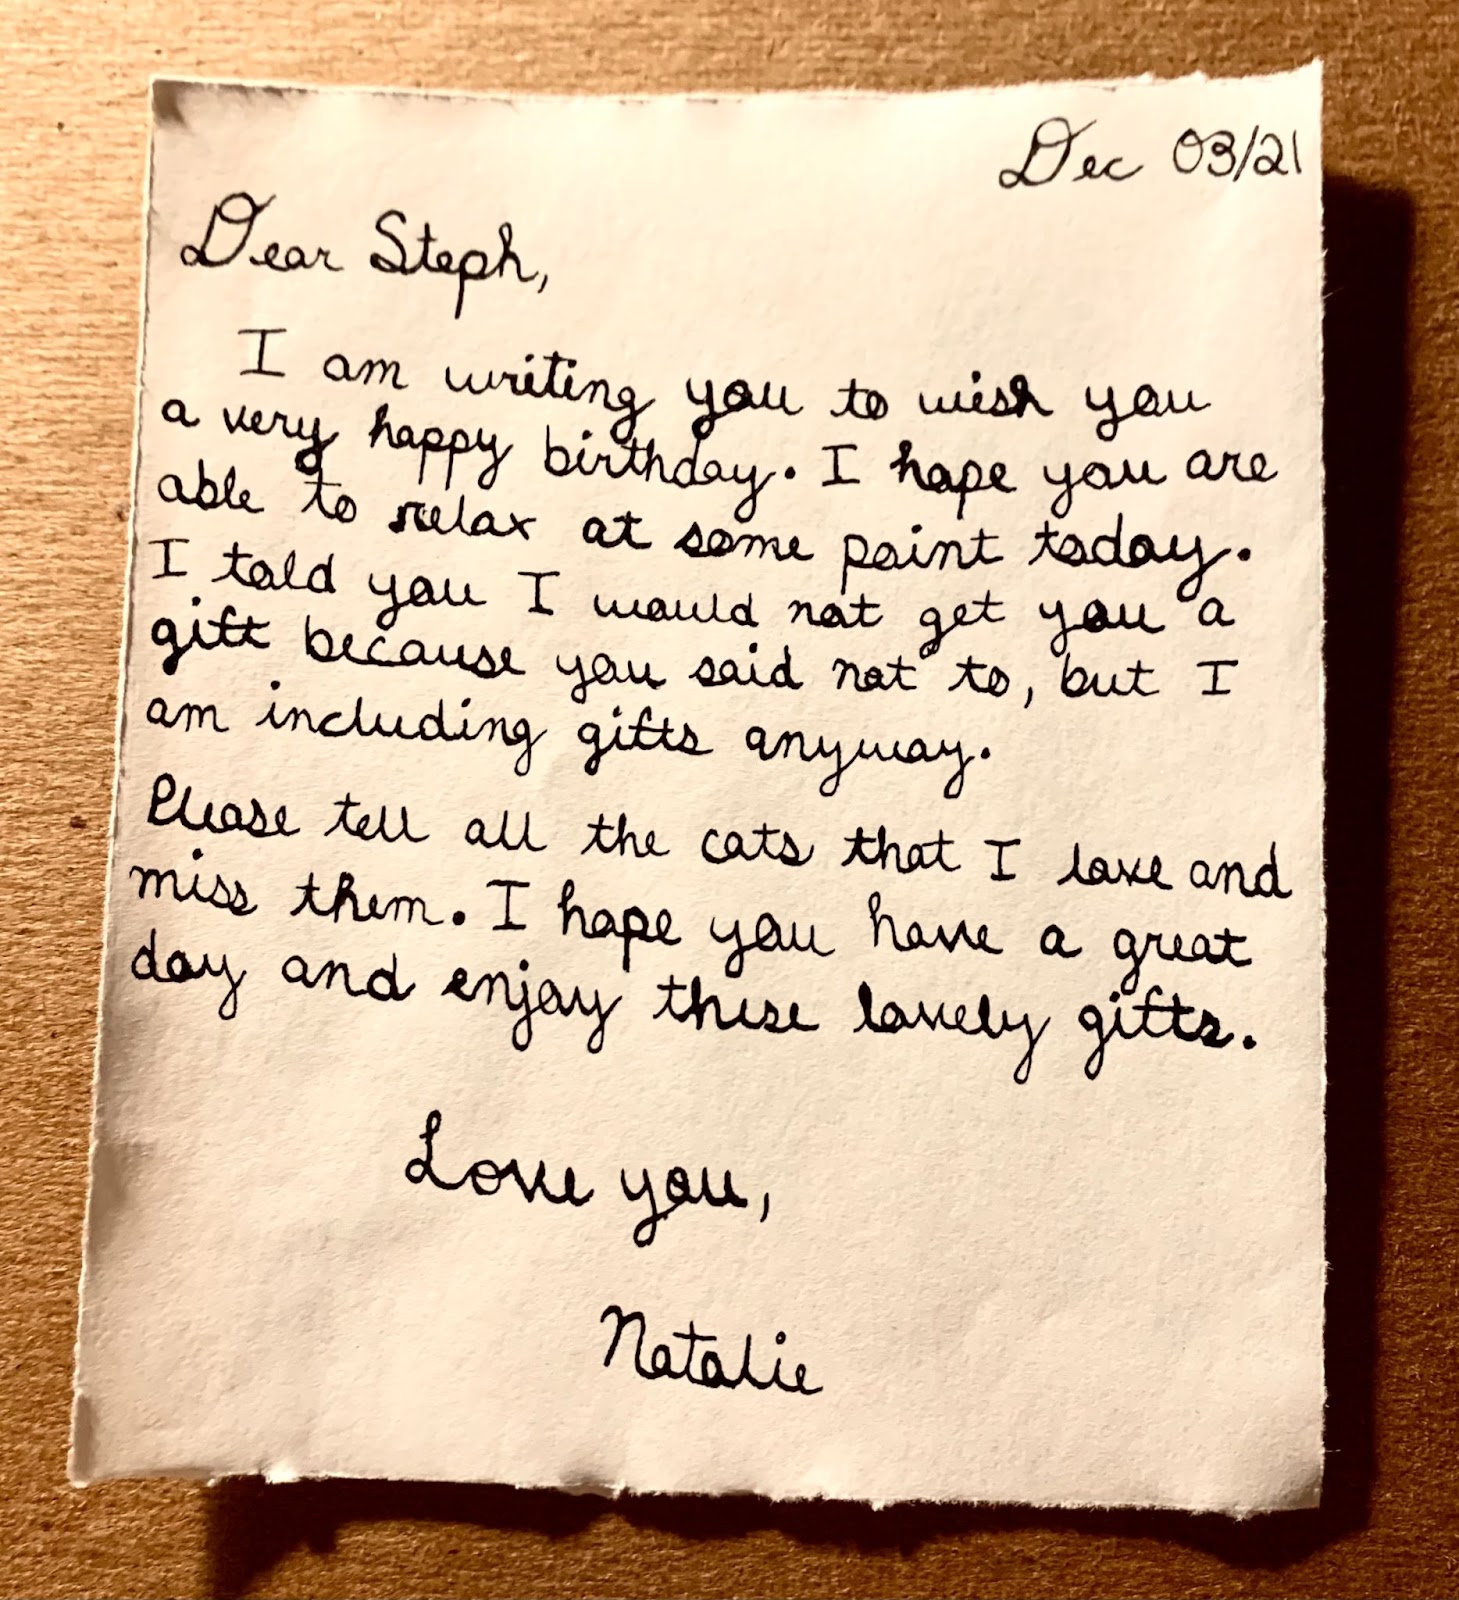 Dec 03/21
Dear Steph,
I am writing you to wish you
a very happy birthday. I hope you are
able to relax at some point today.
I told you I would not get you a
gift because you said not to, but I
am including gifts anyway.
Please tell all the cats that I love and
miss them. I hope you have a great
day and enjoy these lovely gifts.
Love you,
Natalie